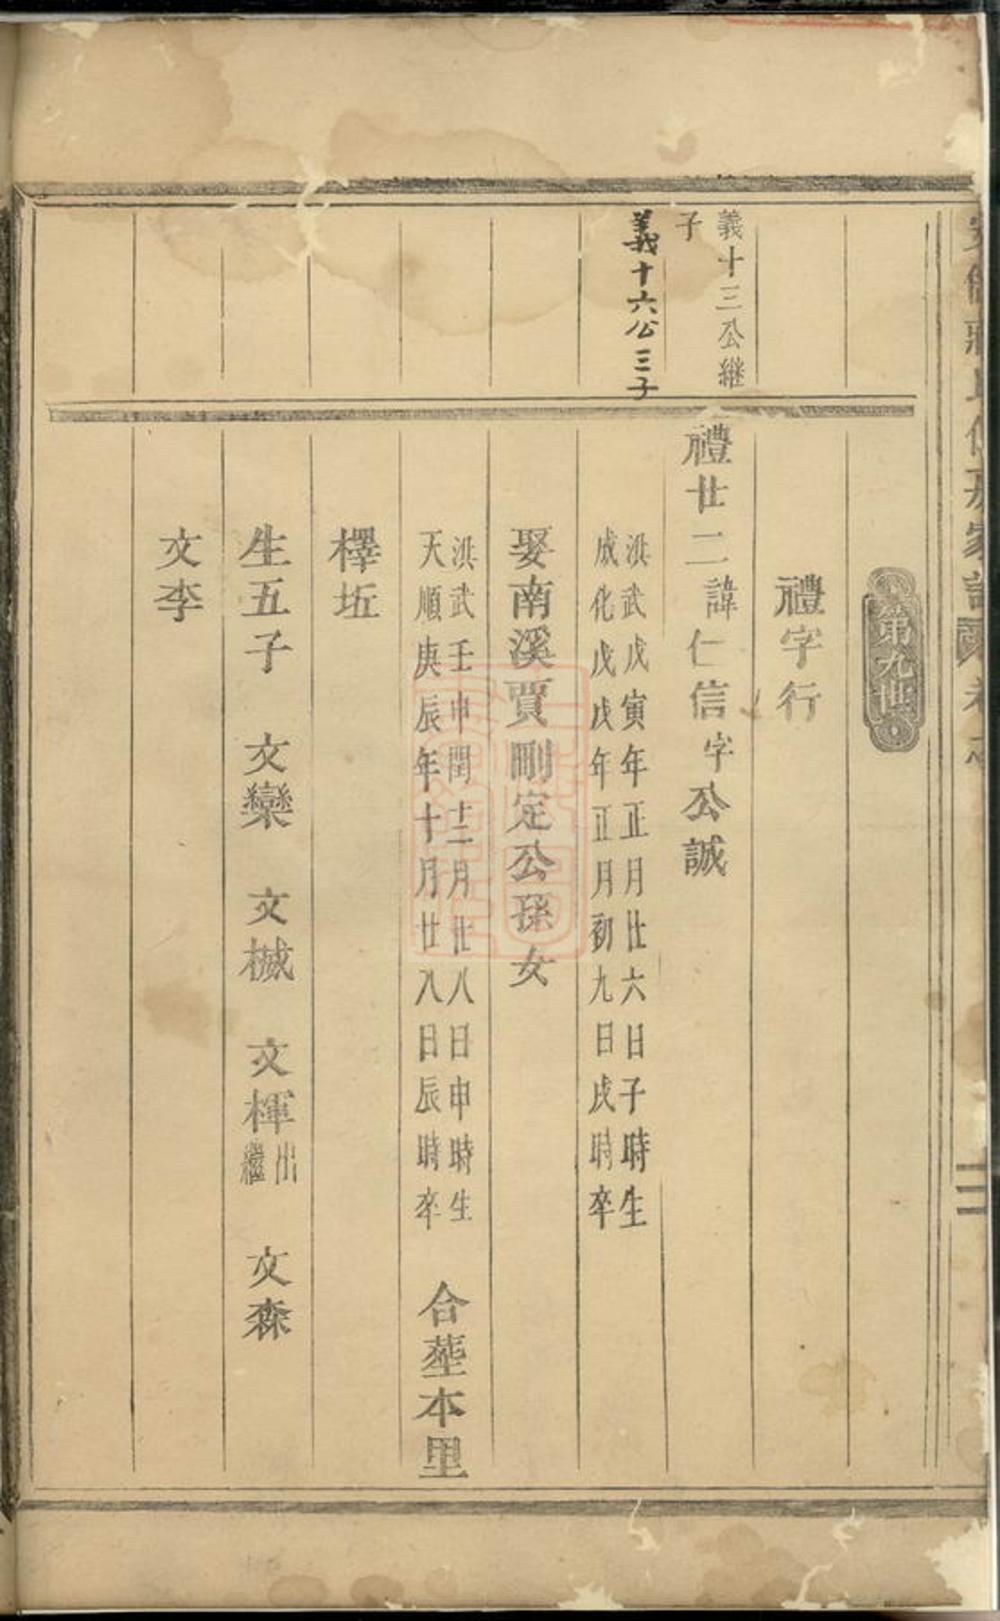 第九世
禮字行
義十三公継
子
禮廿二諱仁信字公誠
義十六公三子
洪武戊寅年正月廿六日子時生
成化戊戌年正月初九日戌時卒
娶南溪賈剛定公孫女
洪武壬申閏十二月廿八日申時生
天順庚辰年十月廿八日辰時卒
合塟本里
檡坵
生五子 文欒 文楲 文楎出繼 文森
文李